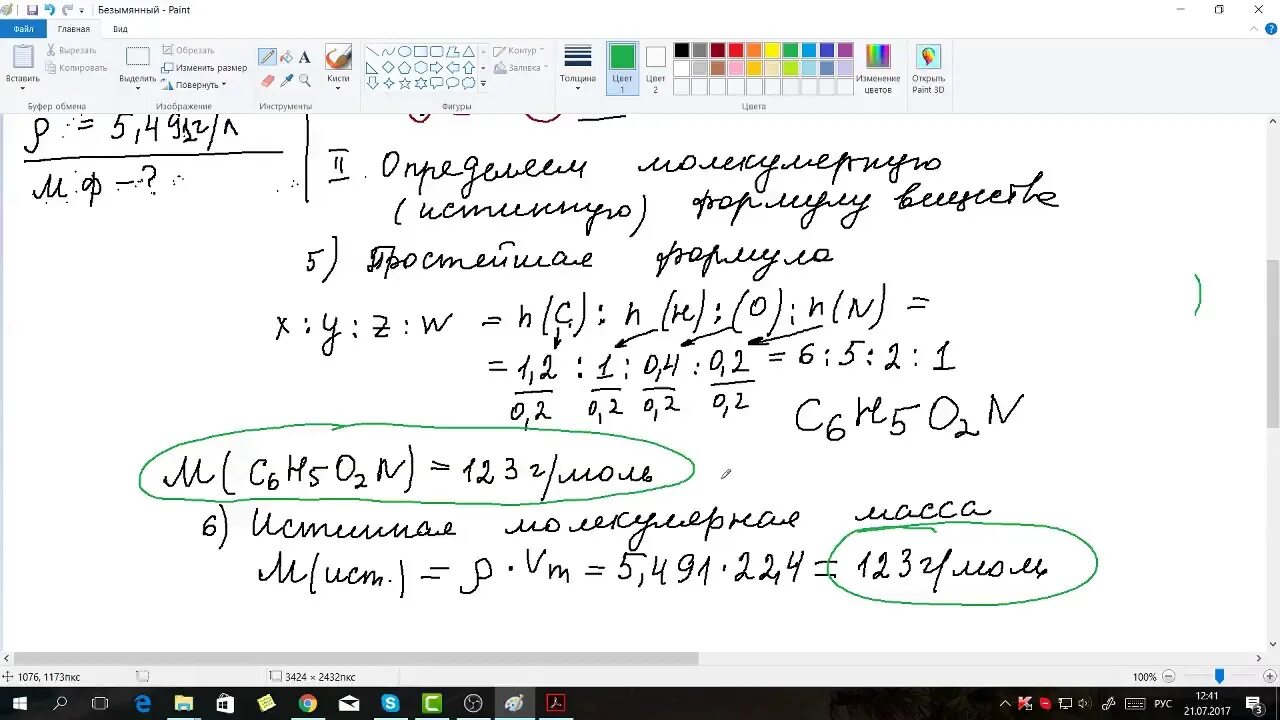 Безымянный - Paint
Файл Главная Вид
Вставить
Вырезать
Копировать
Буфер обмена
Выделить
Обрезать
Изменить размер
Повернуть
Изображение
A
Инструменты
Кисти
Контур
Заливка
Фигуры
Толщина
Цвет 1
Цвет 2
Цвета
Изменение цветов
Открыть Paint 3D
ρ = 5,491г/л
М ф - ?
II Определяем молекулярную
(истинную) формулу вещества
5) Простейшая формула
x : y : z : w = n(C) : n(H) : (O) : n(N) =
= 1,2/0,2 : 1/0,2 : 0,4/0,2 : 0,2/0,2 = 6 : 5 : 2 : 1
C₆H₅O₂N
M(C₆H₅O₂N) = 123 г/моль
6) Истинная молекулярная масса
M(ист.) = ρ · Vm = 5,491 · 22,4 = 123 г/моль
1076, 1173пкс
3424 × 2432пкс
100%
РУС
12:41
21.07.2017
3